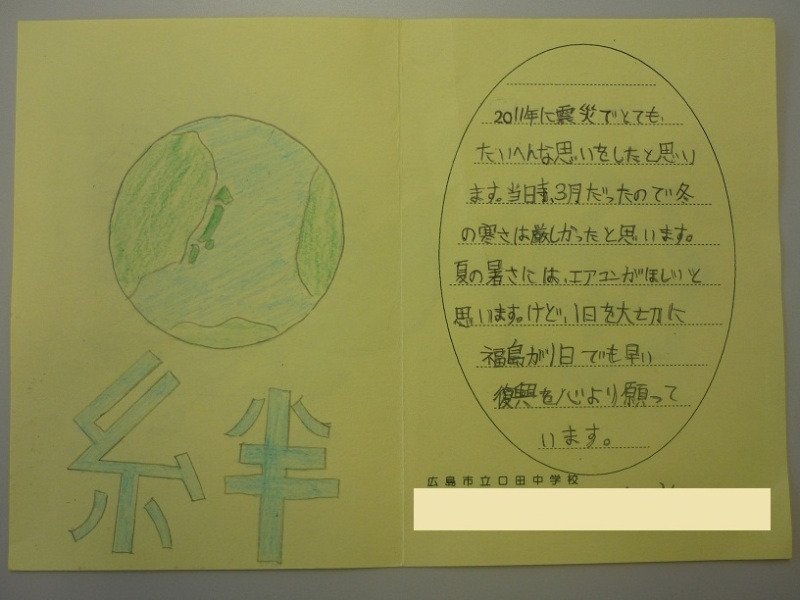 絆
2011年に震災でとても、
たいへんな思いをしたと思い
ます。当時、3月だったので冬
の寒さは厳しかったと思います。
夏の暑さには、エアコンがほしいと
思います。けど、1日を大切に
福島が1日でも早い
復興を心より願って
います。
広島市立口田中学校